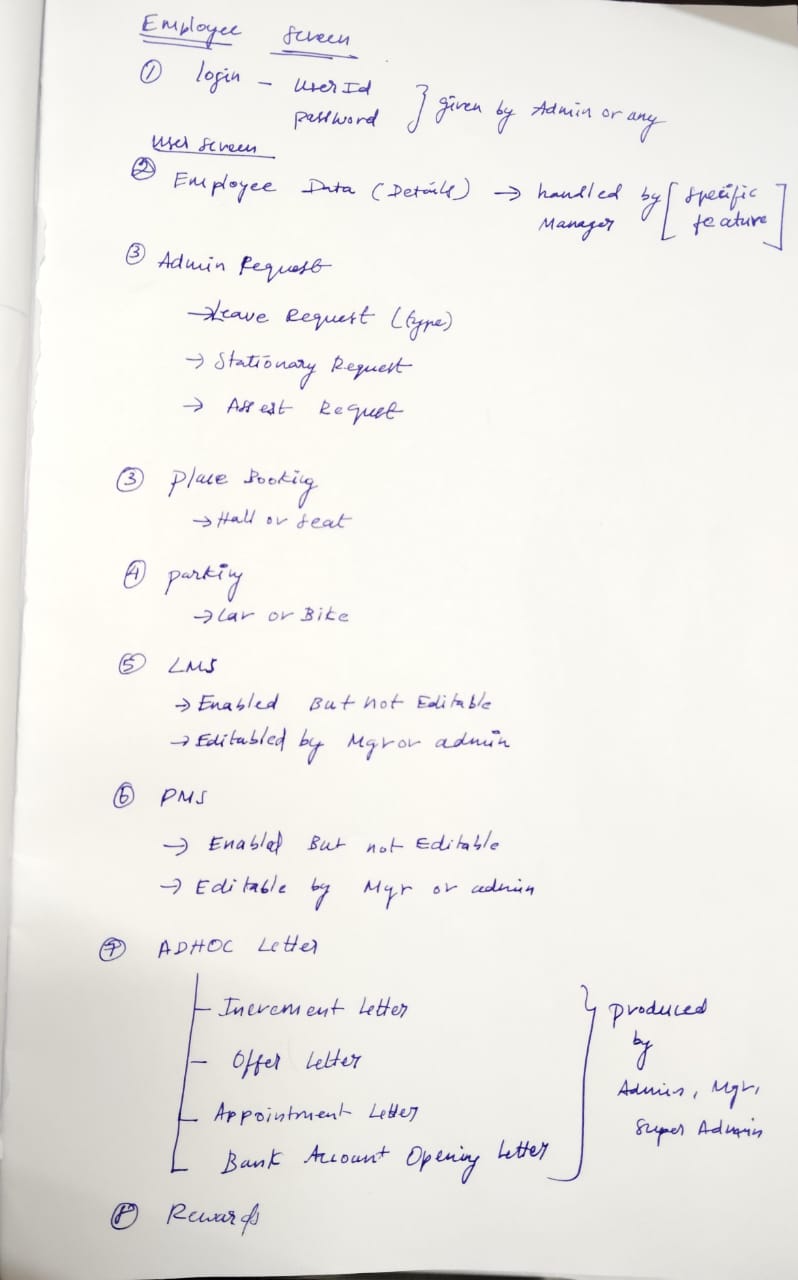 Employee Screen
① login - user Id
password } given by Admin or any
User Screen
② Employee Data (Details) → handled by [specific
Manager feature]
③ Admin Request
→ Leave Request (type)
→ Stationary Request
→ Assest Request
③ Place Booking
→ Hall or Seat
④ parking
→ Car or Bike
⑤ LMS
→ Enabled But not Editable
→ Editabled by Mgr or admin
⑥ PMS
→ Enabled But not Editable
→ Editable by Mgr or admin
⑦ ADHOC Letter
Increment Letter
Offer Letter
Appointment Letter
Bank Account Opening Letter
} produced
by
Admin, Mgr,
Super Admin
⑧ Rewards